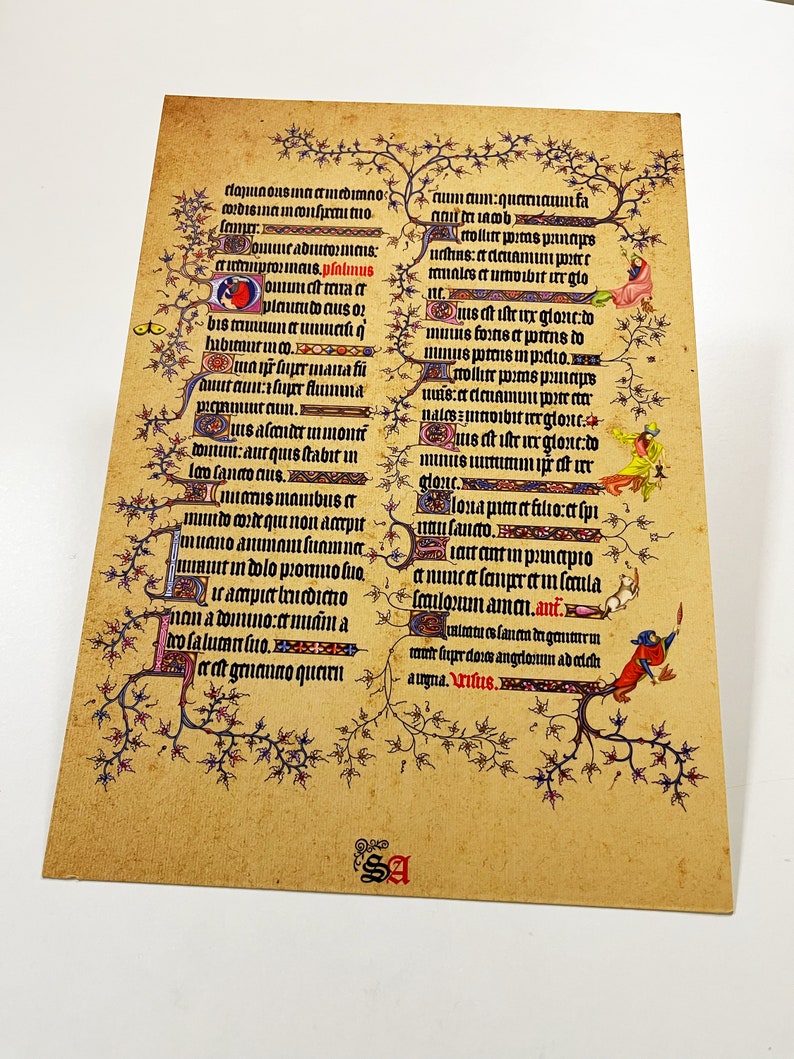 eloquia oris mei et meditacio
cordis mei in conspectu tuo
semper.
Domine adiutor meus:
et redemptor meus. psalmus
Domini est terra et
plenitudo eius or
bis terrarum et universi q
habitant in eo.
Quia ipe super maria fun
davit eum: et super flumina
preparavit eum.
Quis ascendet in montem
domini: aut quis stabit in
loco sancto eius.
Innocens manibus et
mundo corde qui non accepit
in vano animam suam nec
iuravit in dolo proximo suo.
Hic accipiet benedictio
nem a domino: et misam a
deo salutari suo.
Hec est generacio queren
cium eum: querencium fa
ciem dei iacob
Attollite portas principes
vestras: et elevamini porte e
ternales et introibit rex glo
rie.
Quis est iste rex glorie: do
minus fortis et potens do
minus potens in prelio.
Attollite portas principes
vras: et elevamini porte eter
nales et introibit rex glorie.
Quis est iste rex glorie: do
minus virtutum ipe est rex
glorie.
Gloria patri et filio: et spi
ritui sancto.
Sicut erat in principio
et nunc et semper et in secula
seculorum amen. ant.
Exaltata es sancta dei genitrix
super choros angelorum ad celestia
regna. Versus.
SA